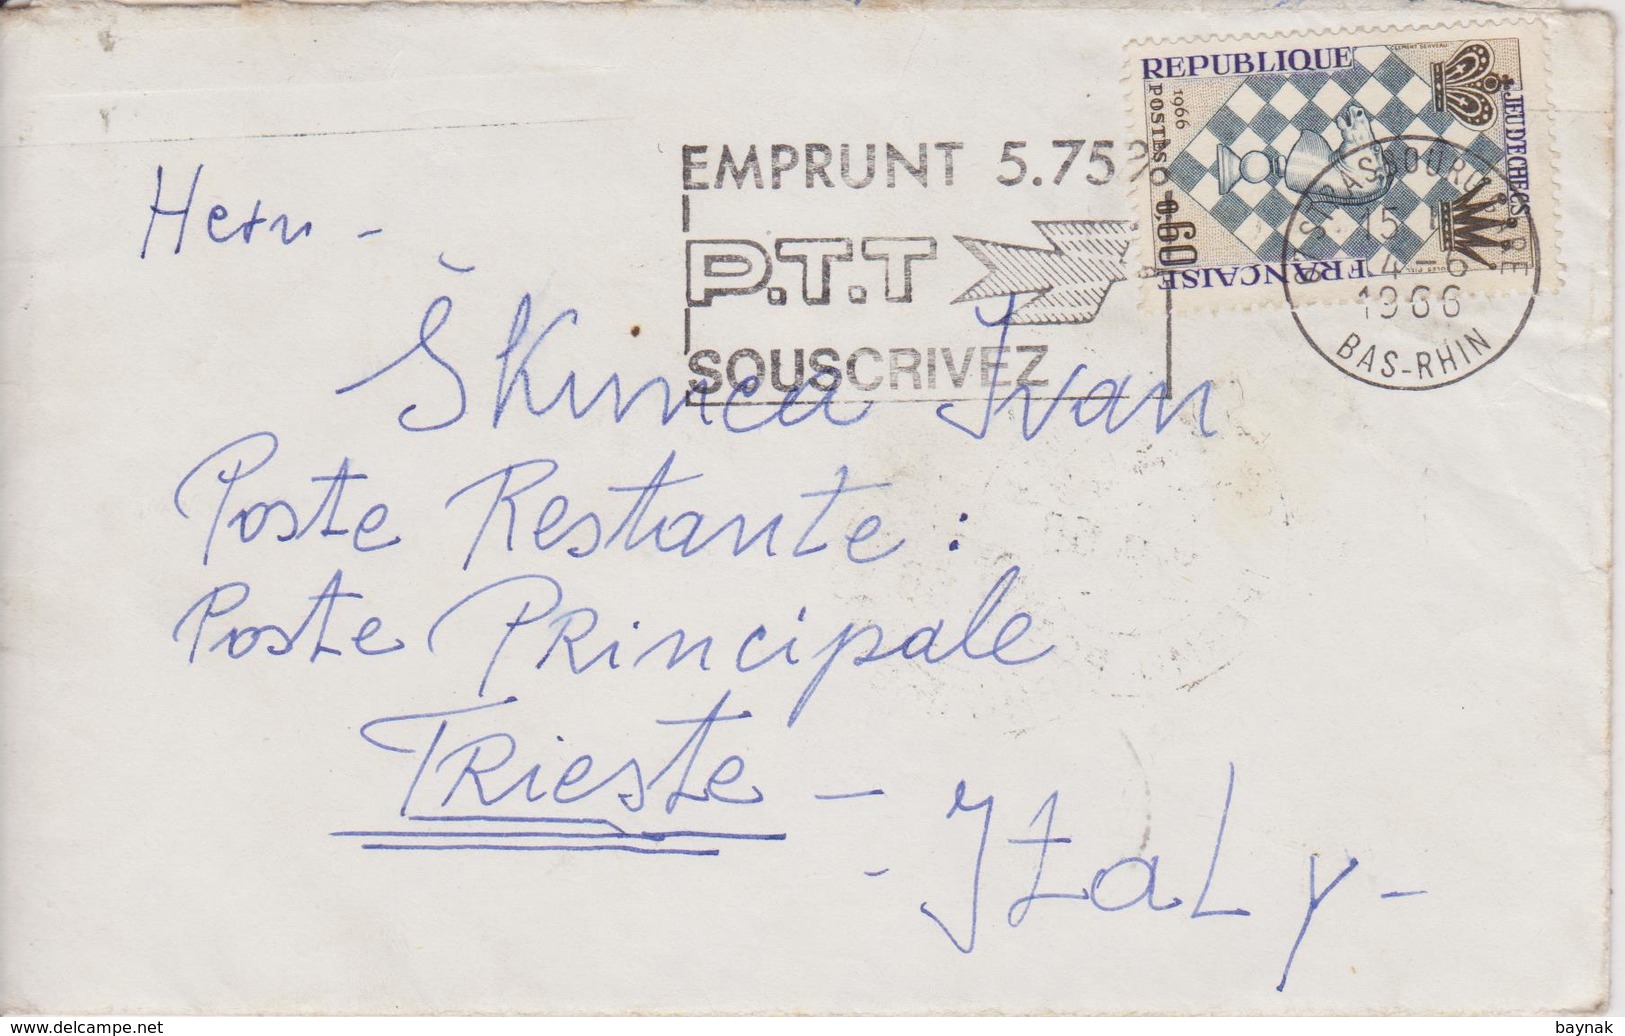 REPUBLIQUE
FRANÇAISE
1966
POSTES 0,60
JEU D'ECHECS
CLEMENT SERVEAU
EMPRUNT 5.75%
P.T.T
SOUSCRIVEZ
STRASBOURG GARE
15
4-6
1966
BAS-RHIN
Herrn -
Škunca Ivan
Poste Restante:
Poste Principale
Trieste -
- Italy -
www.delcampe.net
baynak